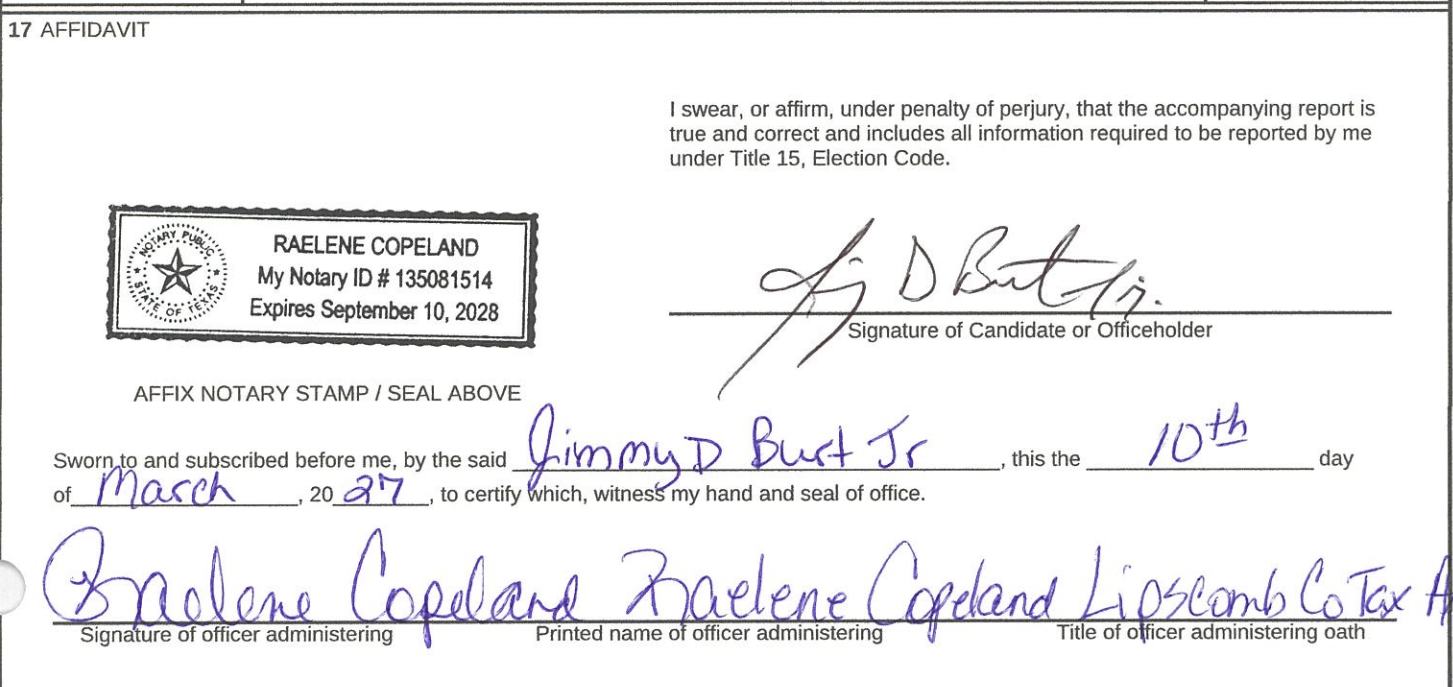 17 AFFIDAVIT
I swear, or affirm, under penalty of perjury, that the accompanying report is
true and correct and includes all information required to be reported by me
under Title 15, Election Code.
NOTARY PUBLIC
STATE OF TEXAS
RAELENE COPELAND
My Notary ID # 135081514
Expires September 10, 2028
D Burt Jr.
Signature of Candidate or Officeholder
AFFIX NOTARY STAMP / SEAL ABOVE
Sworn to and subscribed before me, by the said Jimmy D Burt Jr, this the 10th day
of March, 2027, to certify which, witness my hand and seal of office.
Raelene Copeland Raelene Copeland Lipscomb Co Tax A
Signature of officer administering Printed name of officer administering Title of officer administering oath